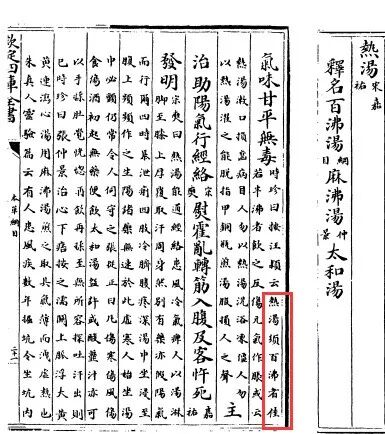 熱湯宋嘉祐
釋名百沸湯綱目麻沸湯仲景太和湯
氣味甘平無毒時珍曰按汪頴云熱湯須百沸者佳
若半沸者飲之反傷元氣作脹或云
熱湯漱口損齒病目人勿以熱湯洗浴凍僵人勿
以熱湯灌之能脫指甲銅瓶煎湯服損人之聲主
治助陽氣行經絡宗奭熨霍亂轉筋入腹及客忤死嘉祐
發明宗奭曰熱湯能通經絡患風冷氣痺人以湯淋
脚至膝上厚覆取汗周身然别有藥亦假陽氣
而行爾四時暴泄痢四肢冷臍腹疼深湯中坐浸至
腹上頻頻作之生陽諸藥無速於此虚寒人始坐湯
中必顫仍常令人伺守之張從正曰凡傷寒傷風傷
食傷酒初起無藥便飲太和湯盌許或酸虀汁亦可
以手揉肚覺恍惚再飲再揉至無所容探吐汗出則
已時珍曰張仲景治心下痞按之濡關上脈浮大黃
黄連瀉心湯用麻沸湯煎之取其氣薄而泄虚熱也
朱真人靈驗篇云有人患風疾數年掘坑令坐坑内
欽定四庫全書
本草綱目